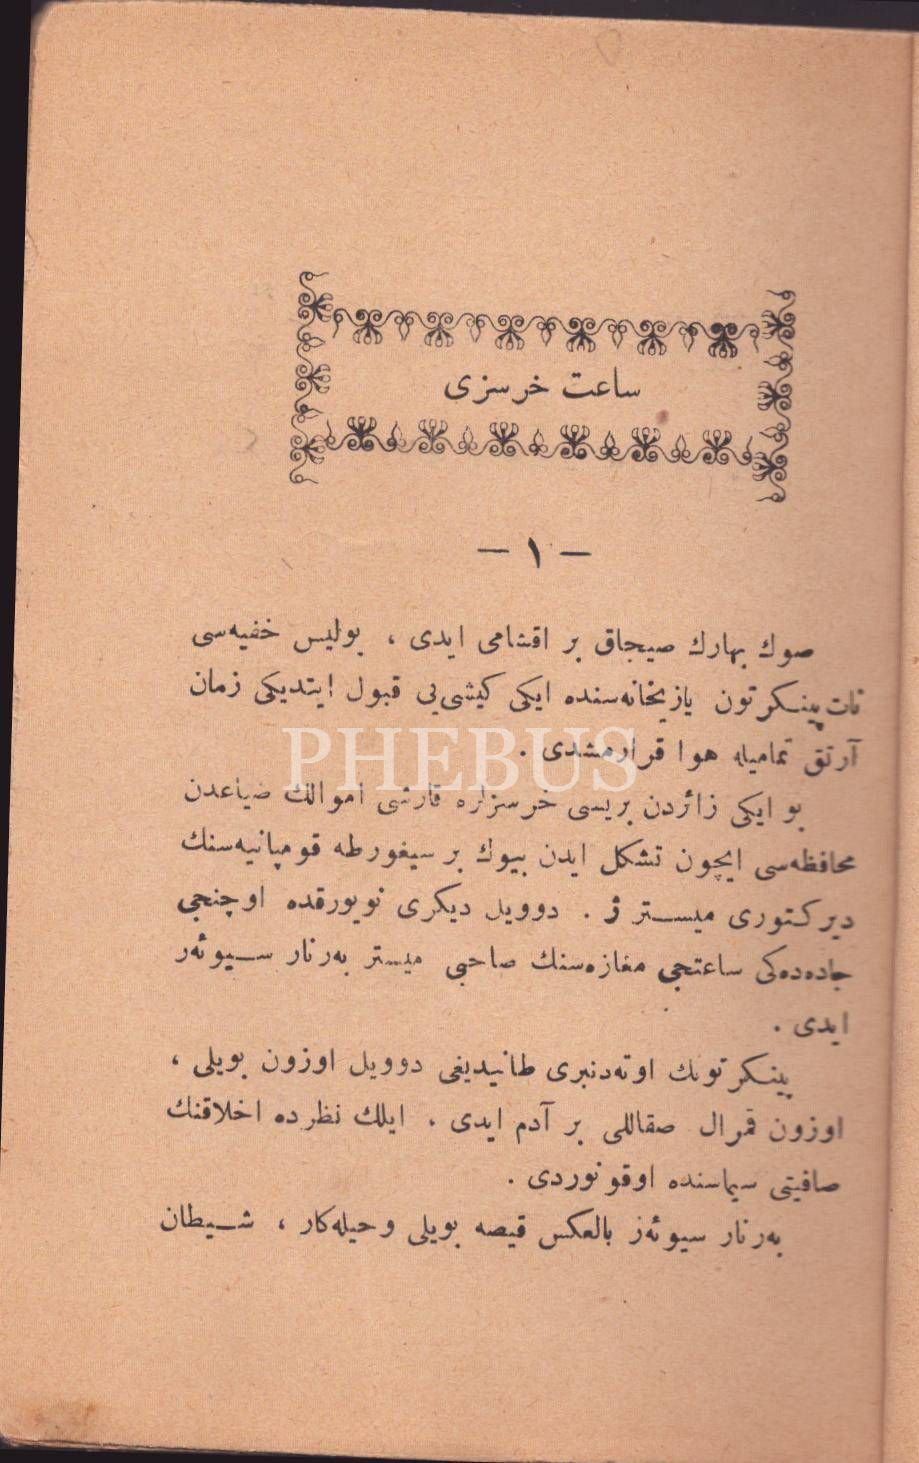 ساعت خرسزی
— ١ —
صوك بهارك صیجاق بر اقشامی ایدی ، بولیس خفیه‌سی
نات پینكرتون یازیخانه‌سنده ایكی كیشی‌یی قبول ایتدیكی زمان
آرتق تمامیله هوا قرارمشدی .
بو ایكی زائردن بریسی خرسزلره قارشی اموالك ضیاعدن
محافظه‌سی ایچون تشكل ایدن بیوك بر سیغورطه قومپانیه‌سنك
دیركتوری میستر ژ . دوویل دیكری نویورقده اوچنجی
جاده‌ده‌كی ساعتجی مغازه‌سنك صاحبی میستر به‌رنار سیوئه‌ر
ایدی .
پینكرتونك اوته‌دنبری طانیدیغی دوویل اوزون بویلی ،
اوزون قمرال صقاللی بر آدم ایدی . ایلك نظرده اخلاقنك
صافیتی سیماسنده اوقونوردی .
به‌رنار سیوئه‌ر بالعكس قیصه بویلی وحیله‌كار ، شیطان
PHEBUS